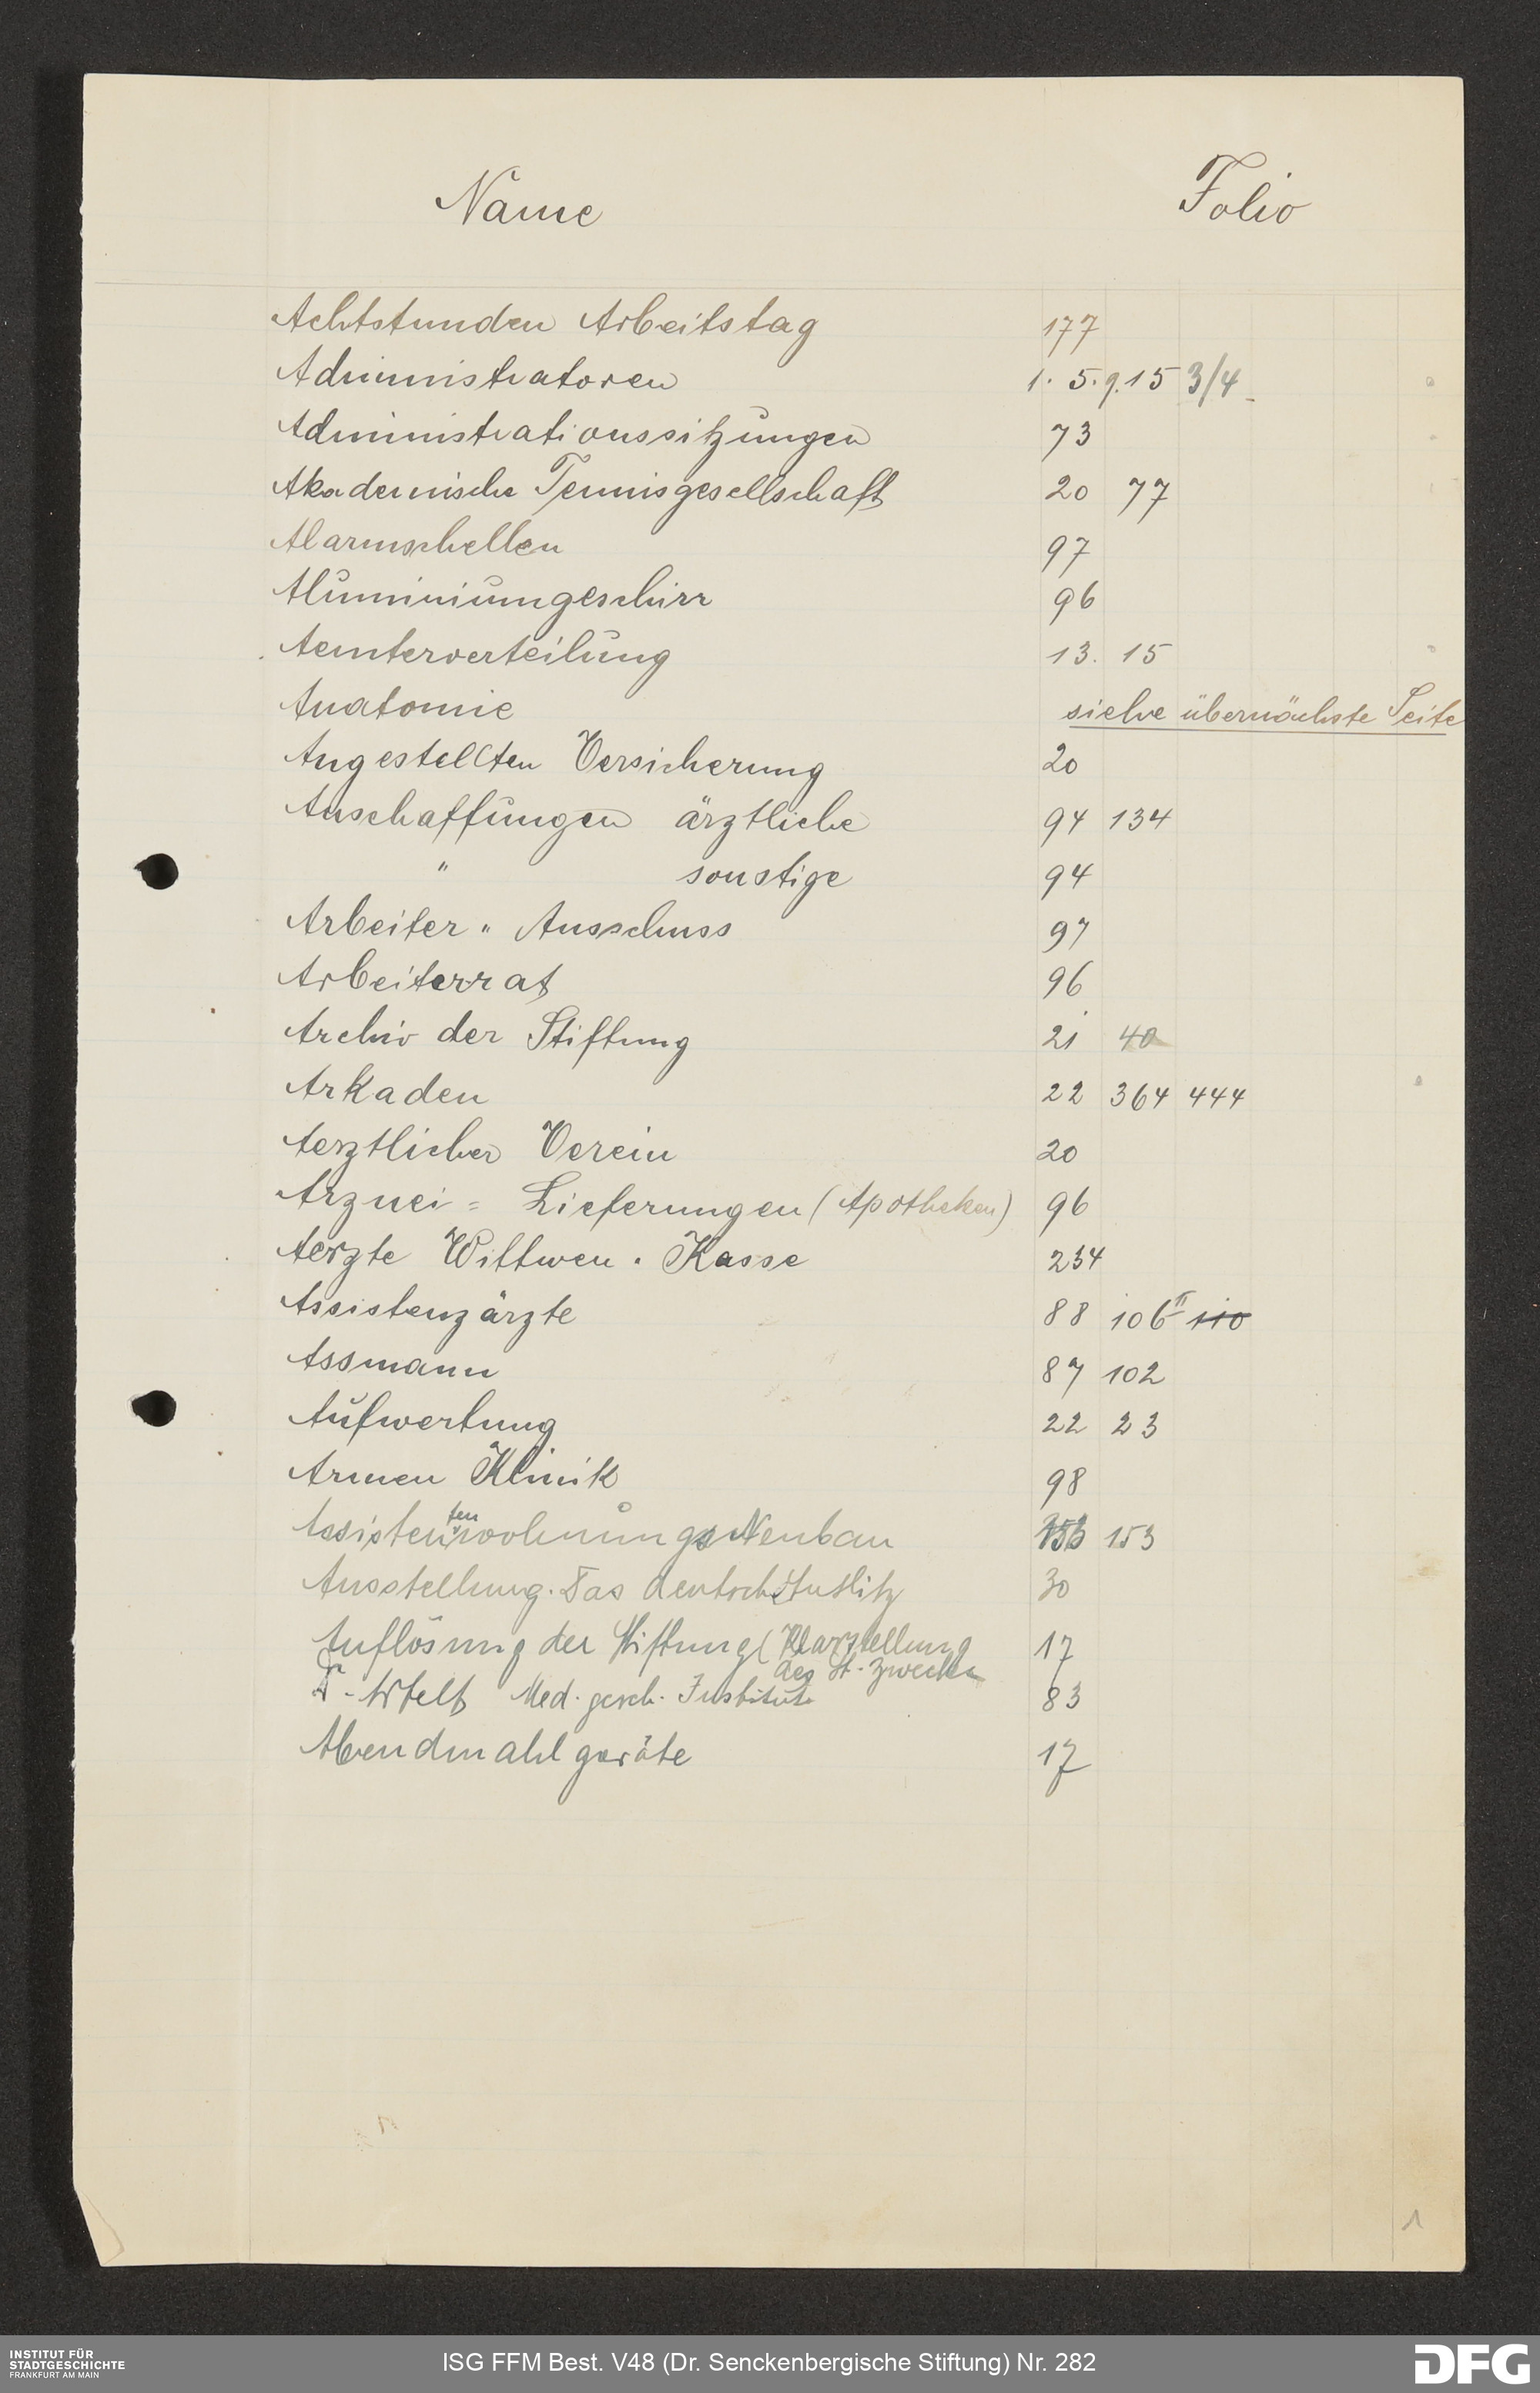 Name Folio
Achtstunden Arbeitstag 177
Administratoren 1. 5. 9. 15 3/4
Administrationssitzungen 73
Akademische Tennisgesellschaft 20 77
Alarmschellen 97
Aluminiumgeschirr 96
Aemterverteilung 13. 15
Anatomie siehe übernächste Seite
Angestellten Versicherung 20
Anschaffungen ärztliche 94 134
" sonstige 94
Arbeiter " Ausschuss 97
Arbeiterrat 96
Archiv der Stiftung 21 40
Arkaden 22 364 444
Aerztlicher Verein 20
Arznei = Lieferungen (Apotheken) 96
Aerzte Wittwen . Kasse 234
Assistenzärzte 88 106 II 110
Assmann 87 102
Aufwertung 22 23
Armen Klinik 98
Assistentenwohnungs Neubau 153
Ausstellung. Das deutsche Antlitz 30
Auflösung der Stiftung (Klarstellung 17
des St. Zweckes
Artelt Med. gesch. Institut 83
Abendmahlgeräte 17
1
INSTITUT FÜR
STADTGESCHICHTE
FRANKFURT AM MAIN
ISG FFM Best. V48 (Dr. Senckenbergische Stiftung) Nr. 282
DFG